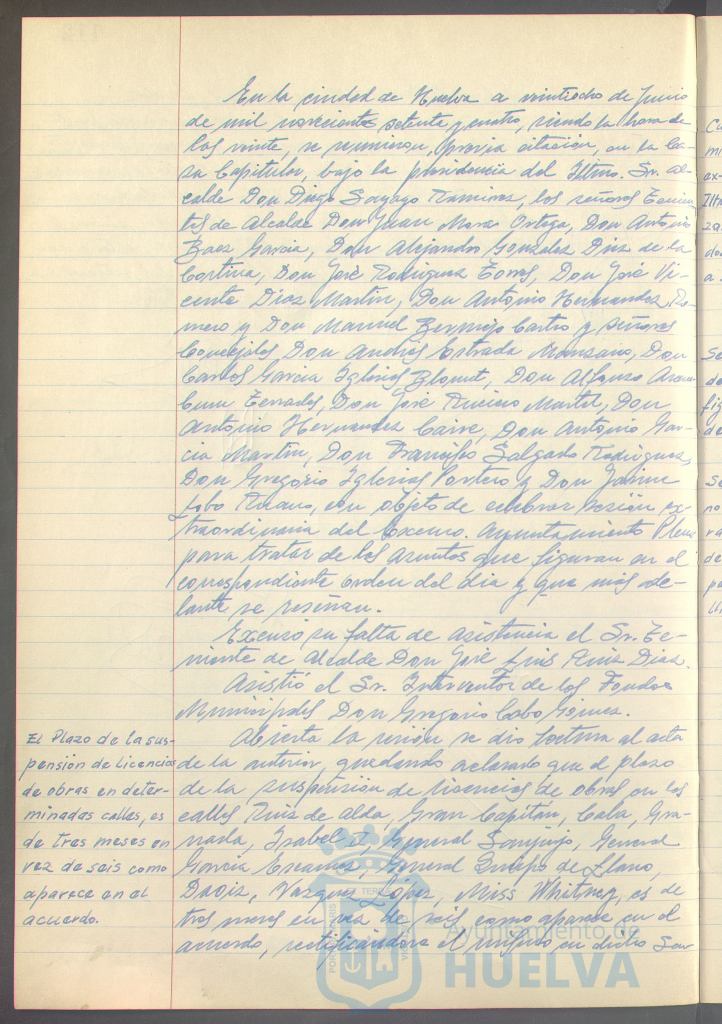 En la ciudad de Huelva a veintiocho de Junio
de mil novecientos setenta y cuatro, siendo la hora de
las veinte, se reunieron, previa citación, en la Ca-
sa Capitular, bajo la presidencia del Iltmo. Sr. Al-
calde Don Diego Sayago Ramirez, los señores Tenien-
tes de Alcalde Don Juan Mora Ortega, Don Antonio
Baez Garcia, Don Alejandro Gonzalez Diez de la
Cortina, Don José Rodriguez Torres, Don José Vi-
cente Diaz Martin, Don Antonio Hernandez Ro-
mero y Don Manuel Bermejo Castro y señores
Concejales Don Andrés Estrada Manzano, Don
Carlos Garcia Iglesias Don Alfonso Aram-
buru Terrades, Don José Martel, Don
Antonio Hernandez Don Antonio Gar-
cia Martin, Don Francisco Salgado Rodriguez,
Don Gregorio Iglesias Portero y Don Jaime
Lobo con objeto de celebrar sesión ex-
traordinaria del Excmo. Ayuntamiento Pleno
para tratar de los asuntos que figuran en el
correspondiente orden del dia y que más ade-
lante se reseñan.
Excusó su falta de asistencia el Sr. Te-
niente de Alcalde Don José Luis Ruiz Diaz.
Asistió el Sr. Interventor de los Fondos
Municipales Don Gregorio Cabo Gómez.
Abierta la sesión se dio lectura al acta
de la anterior, quedando aclarado que el plazo
de la suspensión de licencias de obras en las
calles Ruiz de Alda, Gran Capitán, Cala, Gra-
nada, Isabel II, General Sanjurjo, General
Garcia Escamez, General Queipo de Llano,
Daoiz, Vazquez Lopez, Miss Whitney, es de
tres meses en vez de seis como aparece en el
acuerdo, rectificandose el mismo en dicho sen
El Plazo de la sus-
pensión de Licencias
de obras en deter-
minadas calles, es
de tres meses en
vez de seis como
aparece en el
acuerdo.
Ayuntamiento de
HUELVA